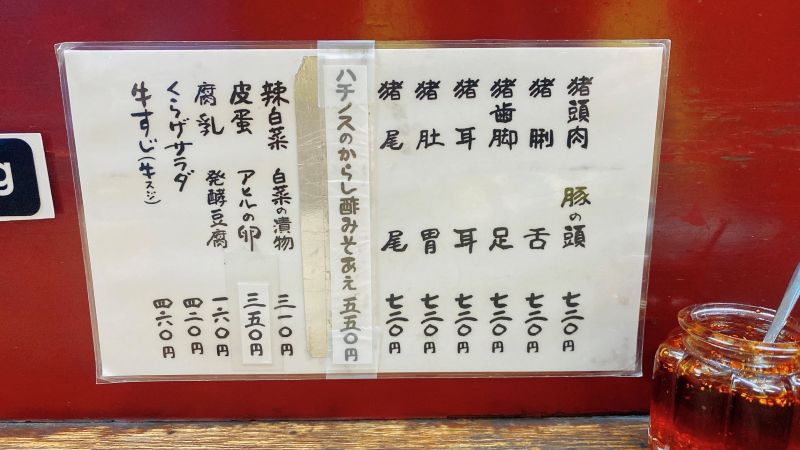 猪頭肉 豚の頭 七二〇円
猪脷 舌 七二〇円
猪歯脚 足 七二〇円
猪耳 耳 七二〇円
猪肚 胃 七二〇円
猪尾 尾 七二〇円
ハチノスのからし酢みそあえ 五五〇円
辣白菜 白菜の漬物 三一〇円
皮蛋 アヒルの卵 三五〇円
腐乳 発酵豆腐 一六〇円
くらげサラダ 四二〇円
牛すじ(牛スジ) 四六〇円
g